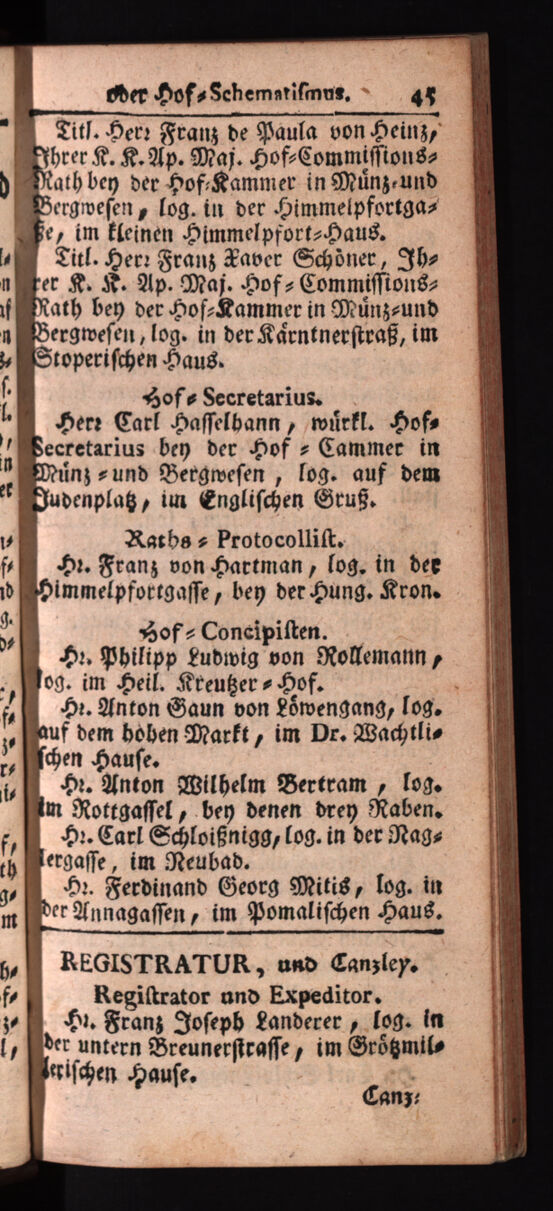 oder Hof-Schematismus. 45
Titl. Herr Franz de Paula von Heinz,
Ihrer K. K. Ap. Maj. Hof-Commissions-
Rath bey der Hof-Kammer in Münz- und
Bergwesen, log. in der Himmelpfortga-
ße, im kleinen Himmelpfort-Haus.
Titl. Herr Franz Xaver Schöner, Ih-
rer K. K. Ap. Maj. Hof-Commissions-
Rath bey der Hof-Kammer in Münz-und
Bergwesen, log. in der Kärntnerstraß, im
Stoperischen Haus.
Hof-Secretarius.
Herr Carl Hasselbann, würkl. Hof-
Secretarius bey der Hof-Cammer in
Münz-und Bergwesen, log. auf dem
Judenplatz, im Englischen Gruß.
Raths-Protocollist.
Hr. Franz von Hartman, log. in der
Himmelpfortgasse, bey der Hung. Kron.
Hof-Concipisten.
Hr. Philipp Ludwig von Rollemann,
log. im Heil. Kreutzer-Hof.
Hr. Anton Gaun von Löwengang, log.
auf dem hohen Markt, im Dr. Wachtli-
schen Hause.
Hr. Anton Wilhelm Bertram, log.
im Rottgassel, bey denen drey Raben.
Hr. Carl Schloißnigg, log. in der Nag-
lergasse, im Neubad.
Hr. Ferdinand Georg Mitis, log. in
der Annagassen, im Pomalischen Haus.
REGISTRATUR, und Canzley.
Registrator und Expeditor.
Hr. Franz Joseph Landerer, log. in
der untern Breunerstrasse, im Grötzmil-
lerischen Hause.
Canz-